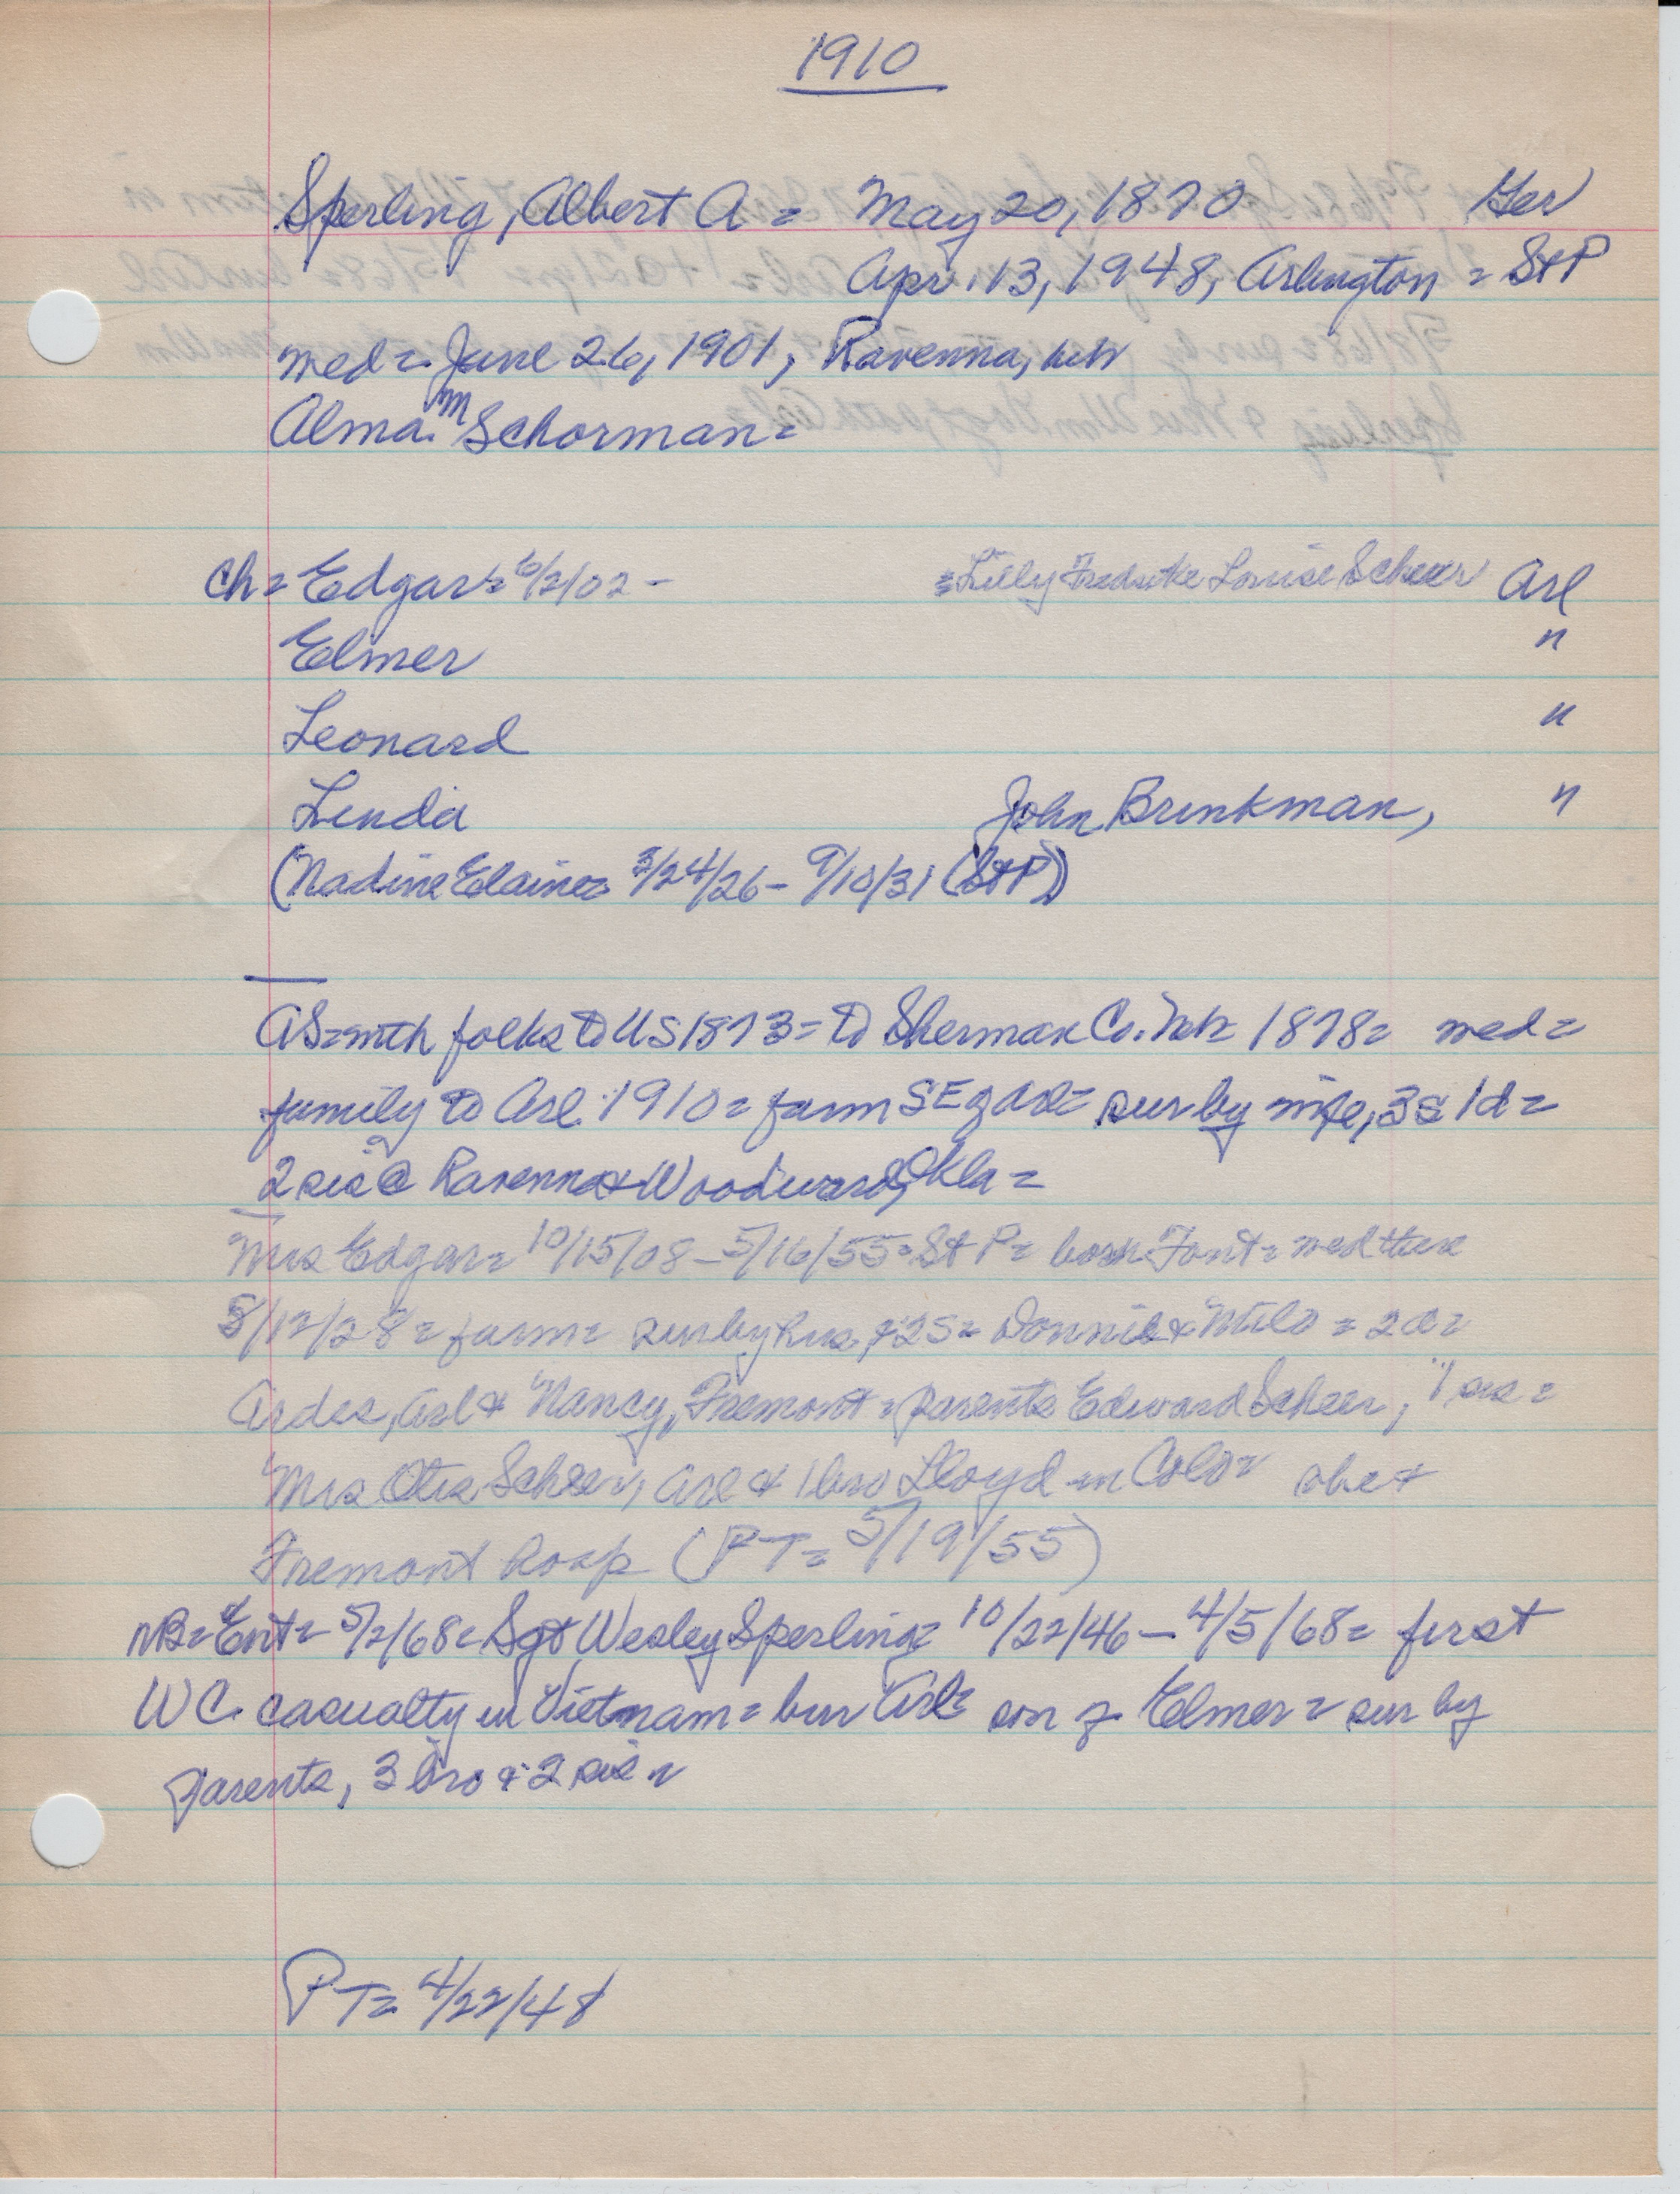 1910
Sperling, Albert A = May 20, 1870 Ger
Apr. 13, 1948, Arlington = St P
wed = June 26, 1901, Ravenna, Neb
Alma M Schorman =
Ch = Edgar = 6/2/02 - = Lilly Louise Scheer Arl
Elmer "
Leonard "
Linda John Brinkman, "
(Nadine Elaine = 3/24/26 - 9/10/31 (St P))
AS = with folks to US 1873 = to Sherman Co. Neb 1878 = wed =
family to Arl. 1910 = farm SE of Arl = sur by wife, 3s 1d =
2 sis @ Ravenna & Woodward, Okla =
Mrs Edgar = 10/15/08 - 5/16/55 = St P = born Font = wed there
8/12/28 = farm = sur by hus, & 2s = Donnie & Milo = 2d =
Ardes, Arl & Nancy, Fremont = parents Edward Scheer, 1 sis =
Mrs Otis Scheer, Arl & 1 bro Lloyd in Colo =
Fremont hosp (PT = 5/19/55)
NB = Ent = 5/2/68 = Sgt Wesley Sperling = 10/22/46 - 4/5/68 = first
WC. casualty in Vietnam = bur Arl = son of Elmer = sur by
parents, 3 bro & 2 sis =
PT = 4/22/48